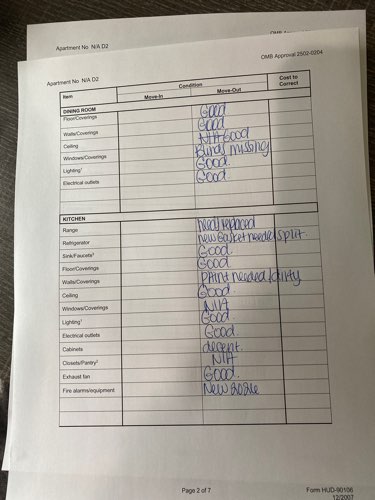 Apartment No N/A D2
OMB Approval 2502-0204
Apartment No N/A D2
Item Condition Cost to Correct
Move-In Move-Out
DINING ROOM
Floor/Coverings Good
Walls/Coverings Good
Ceiling N/A Good
Windows/Coverings Blinds missing
Lighting¹ Good.
Electrical outlets Good.
KITCHEN
Range need replaced
Refrigerator new gasket needed/split.
Sink/Faucets² Good.
Floor/Coverings Good
Walls/Coverings PAint needed/dirty
Ceiling Good.
Windows/Coverings N/A
Lighting¹ Good.
Electrical outlets Good.
Cabinets decent.
Closets/Pantry² N/A
Exhaust fan Good.
Fire alarms/equipment New 2024
Page 2 of 7
Form HUD-90106
12/2007